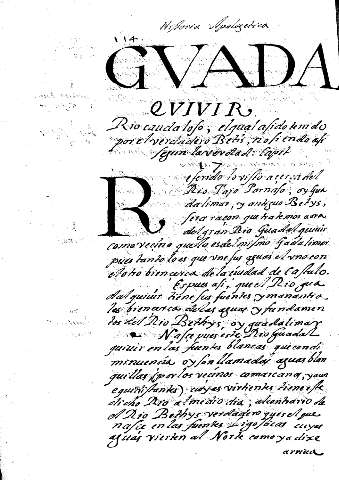 Historia Apologetica
114.
GVADA
QVIVIR
Rio caudaloso; el qual a sido tenido
por el verdadero Betis, no siendo asi
segun la verdad. Capit.
17
Referido lo visto acerca del
Rio Tajo Pornaso, oy Gua
dalimar, y antiguo Bethys,
sera razon que tratemos aora
del gran Rio Guadalquiuir
como vecino que lo es del mismo Guadalimar
pues tanto lo es que vnen sus aguas el vno con
el otro bien cerca de la ciudad de Castulo.
Es pues asi, que el Rio gua
dalquiuir tiene sus fuentes y manantia
les bien cerca de las aguas y fundamen
tos del Rio Bethys, oy guadalimar
Nace pues este Rio Guadal
quiuir en las fuentes blancas que en di
minucion, oy son llamadas aguas blan
quillas (por los vecinos comarcanos, y aun
equidistantes) cuyas vertientes tiene este
dicho Rio al medio dia; al contrario de
el Rio Bethys verdadero que es el que
nace en las fuentes Sigosacas cuyas
aguas vierten al Norte como ya dixe
arriua